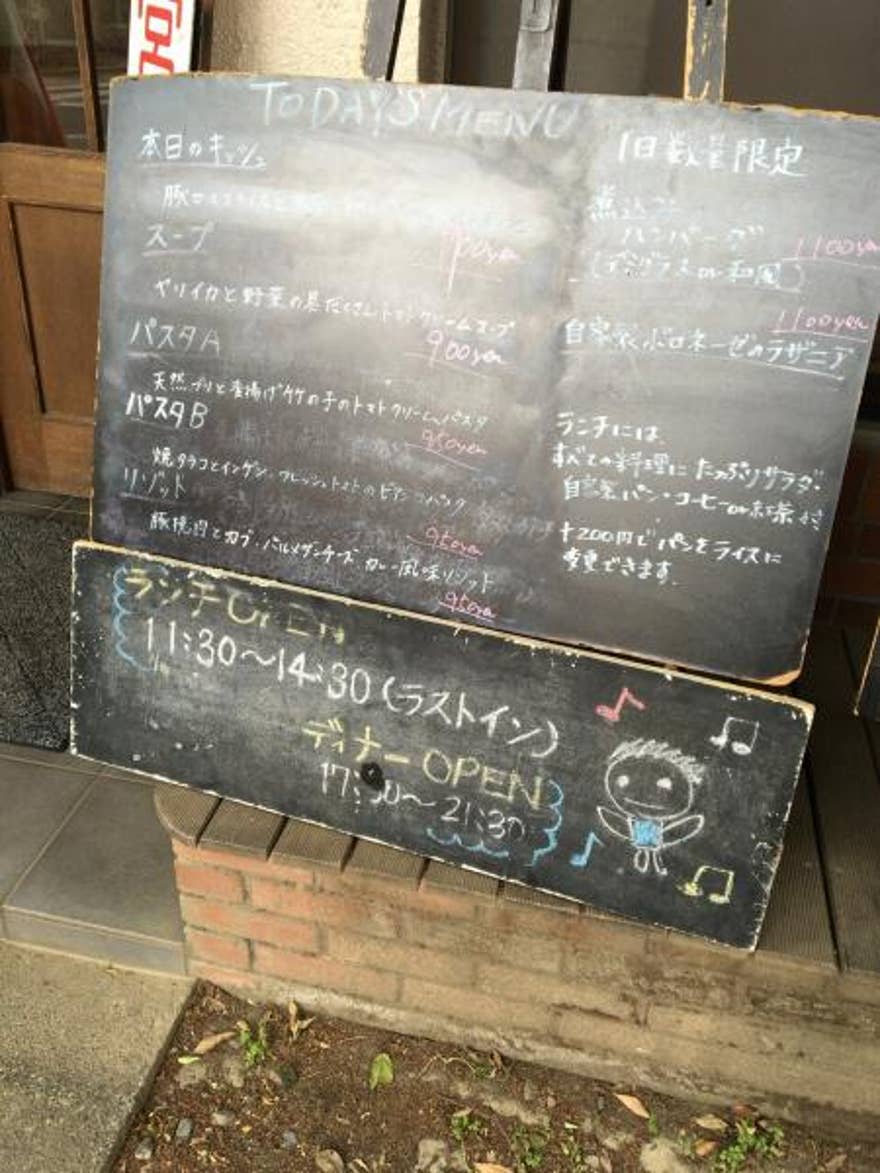 宮
TODAY'S MENU
本日のキッシュ
900yen
スープ
ヤリイカと野菜の具だくさんトマトクリームスープ
900yen
パスタA
天然ブリと釜揚げ竹の子のトマトクリームパスタ
950yen
パスタB
焼タラコとインゲン、フレッシュトマトのビアンコパスタ
950yen
リゾット
豚挽肉とカブ、パルメザンチーズ カレー風味リゾット
950yen
1日数量限定
煮込み
ハンバーグ
1100yen
(デミグラスor和風)
1100yen
自家製ボロネーゼのラザニア
ランチには、
すべての料理に たっぷりサラダ・
自家製パン・コーヒーor紅茶 付き
+200円で パンをライスに
変更できます.
ランチOPEN
11:30〜14:30(ラストイン)
ディナーOPEN
17:30〜21:30